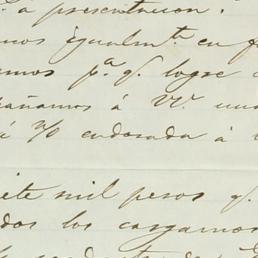 á presentacion.
mos igualmte. en f
emos pa. q. logre
añamos á VV. una
á n/o endosada á l
iete mil pesos q.
dos los cargamos